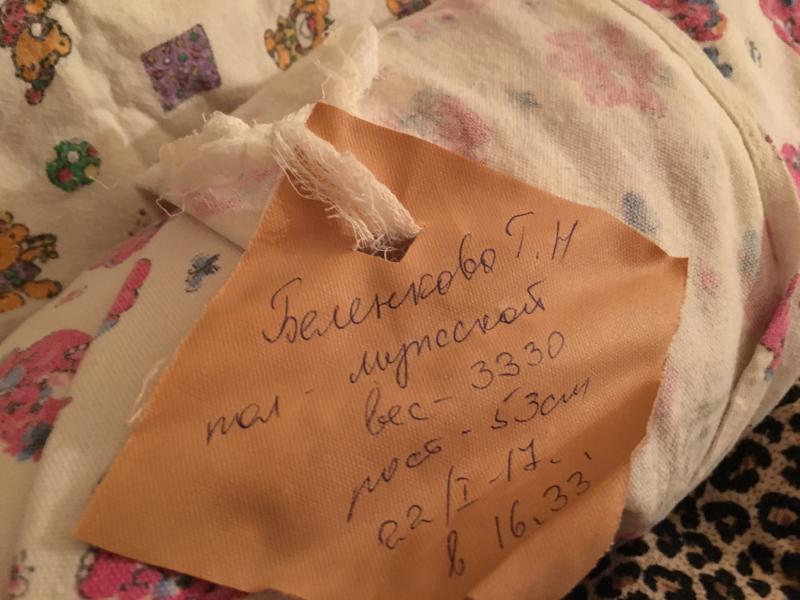 Беленкова Т.Н
пол - мужской
вес - 3330
рост - 53см
22/I-17.
в 16.33,